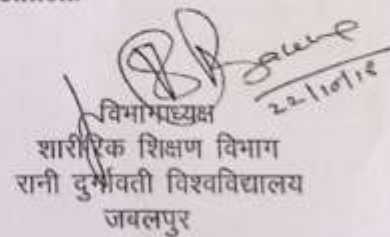 22/10/18
विभागाध्यक्ष
शारीरिक शिक्षण विभाग
रानी दुर्गावती विश्वविद्यालय
जबलपुर